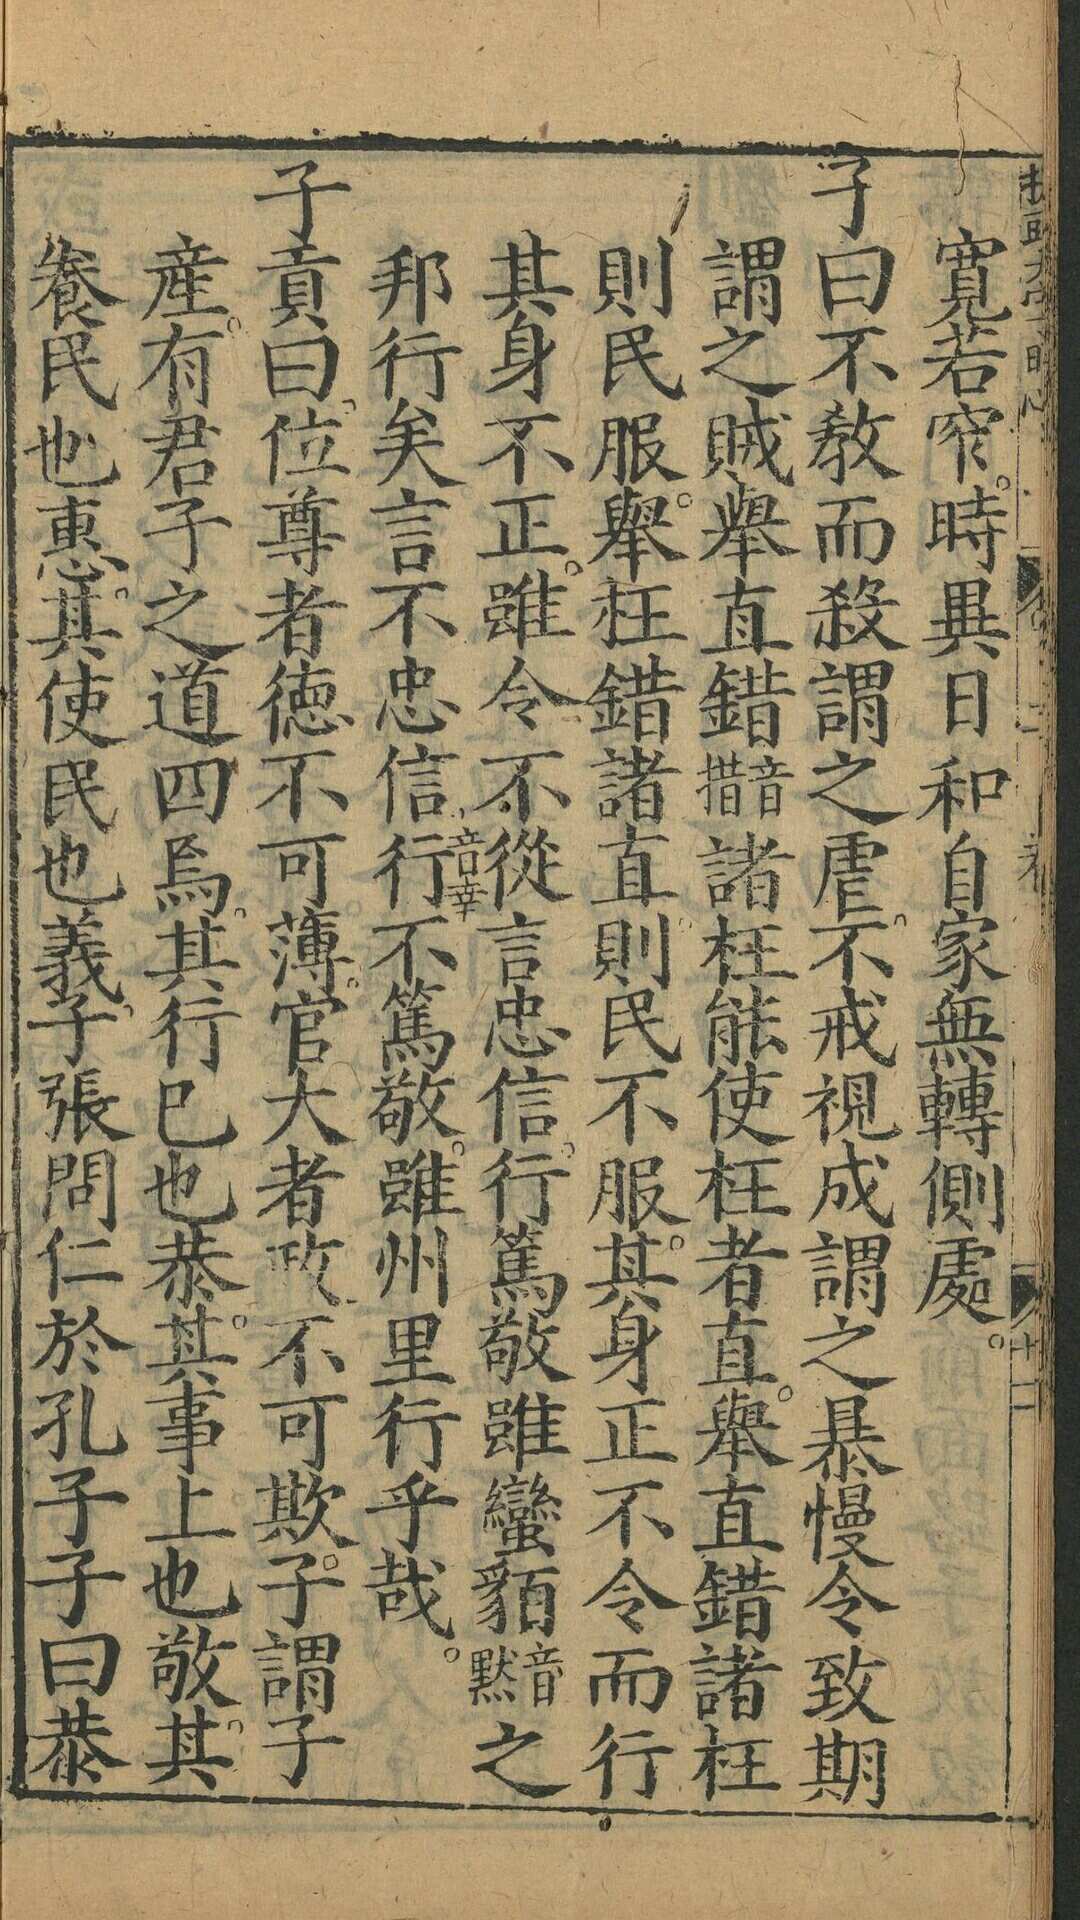 寬若窄時異日和自家無轉側處
子曰不教而殺謂之虐不戒視成謂之暴慢令致期
謂之賊舉直錯音措諸枉能使枉者直舉直錯諸枉
則民服舉枉錯諸直則民不服其身正不令而行
其身不正雖令不從言忠信行篤敬雖蠻貊音默之
邦行矣言不忠信行音幸不篤敬雖州里行乎哉
子貢曰位尊者德不可薄官大者政不可欺子謂子
產有君子之道四焉其行已也恭其事上也敬其
養民也惠其使民也義子張問仁於孔子子曰恭